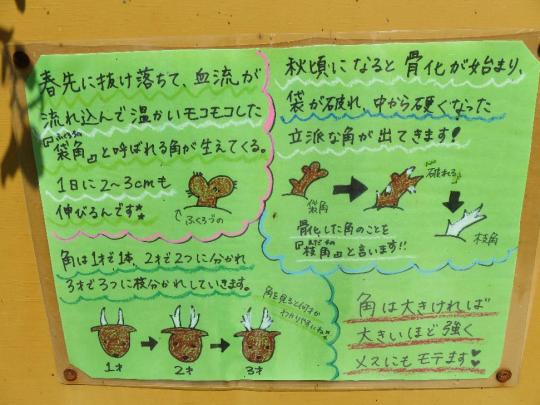 春先に抜け落ちて、血流が
流れ込んで温かいモコモコした
『袋角』と呼ばれる角が生えてくる。
ふくろづの
1日に2〜3cmも
伸びるんです
ふくろづの
秋頃になると骨化が始まり、
袋が破れ、中から硬くなった
立派な角が出てきます!
袋角
破れる
枝角
骨化した角のことを
えだづの
『枝角』と言います!!
角は1才で1本、2才で2つに分かれ
3才で3つに枝分かれしていきます。
角を見ると何才か
わかりやすいね
1才
2才
3才
角は大きければ
大きいほど強く
メスにもモテます♥